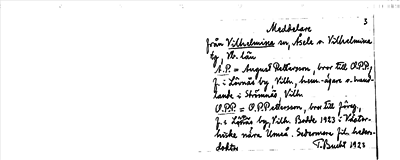 3
Meddelare
från Vilhelmina sn, Åsele o. Vilhelmina
tg, Vb. län
A.P. = August Pettersson, bror till O.P.P.,
f. i Lövnäs by, Vilh., hem.-ägare o. hand-
lande i Strömnäs, Vilh.
O.P.P. = O.P.Pettersson, bror till föreg.,
f. i Lövnäs by, Vilh. Bodde 1923 i
nära Umeå. Sedermera fil. heders-
doktor
T. Bucht 1923